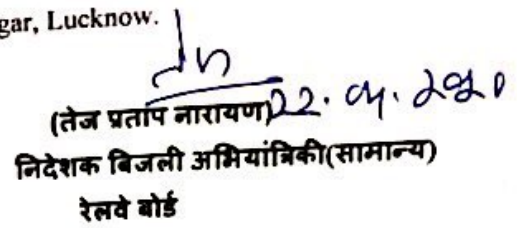 gar, Lucknow.
(तेज प्रताप नारायण) 22.04.2020
निदेशक बिजली अभियांत्रिकी(सामान्य)
रेलवे बोर्ड